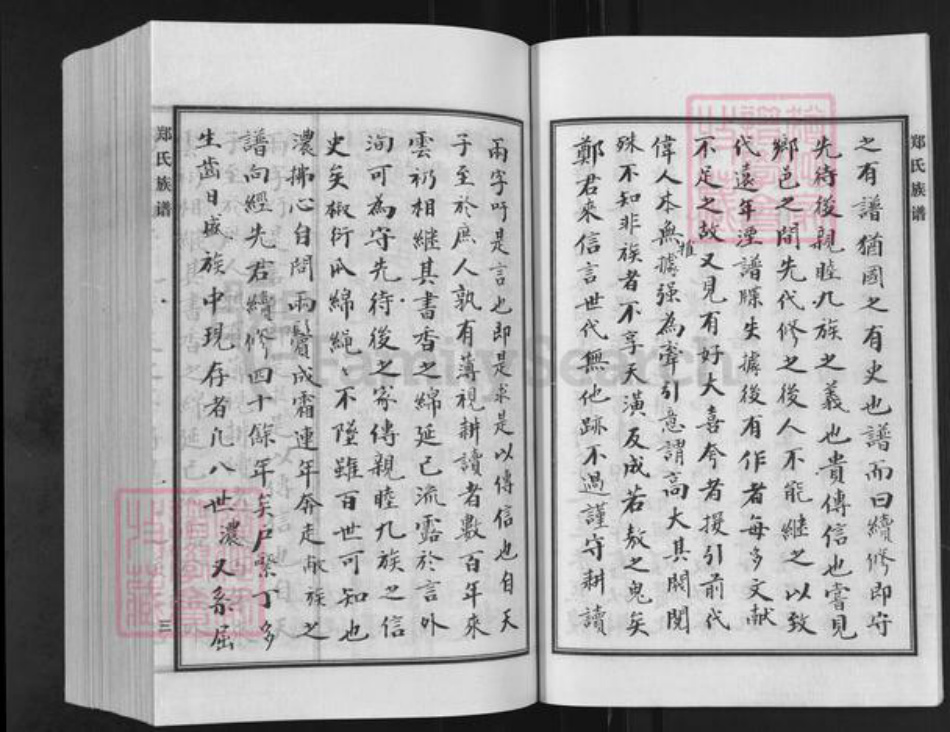 郑氏族谱
之有譜猶國之有史也譜而曰續修即守
先待後親睦九族之義也貴傳信也嘗見
鄉邑之間先代修之後人不能繼之以致
代遠年湮譜牒失據後有作者每多文献
不足之故又見有好大喜夸者援引前代
偉人本無據强為牽引意謂高大其閥閱
推
殊不知非族者不享天潢反成若敖之鬼矣
鄭君來信言世代無他跡不過謹守耕讀
兩字吁是言也即是求是以傳信也自天
子至於庶人孰有薄視耕讀者數百年來
雲礽相繼其書香之綿延已流露於言外
洵可為守先待後之家傳親睦九族之信
史矣椒衍瓜綿繩〻不墜雖百世可知也
濃拂心自問兩鬢成霜連年奔走敝族之
譜向經先君續修四十餘年矣戶繫丁多
生齒日盛族中現存者凡八世濃又忝屆
郑氏族谱
三
FamilySearch